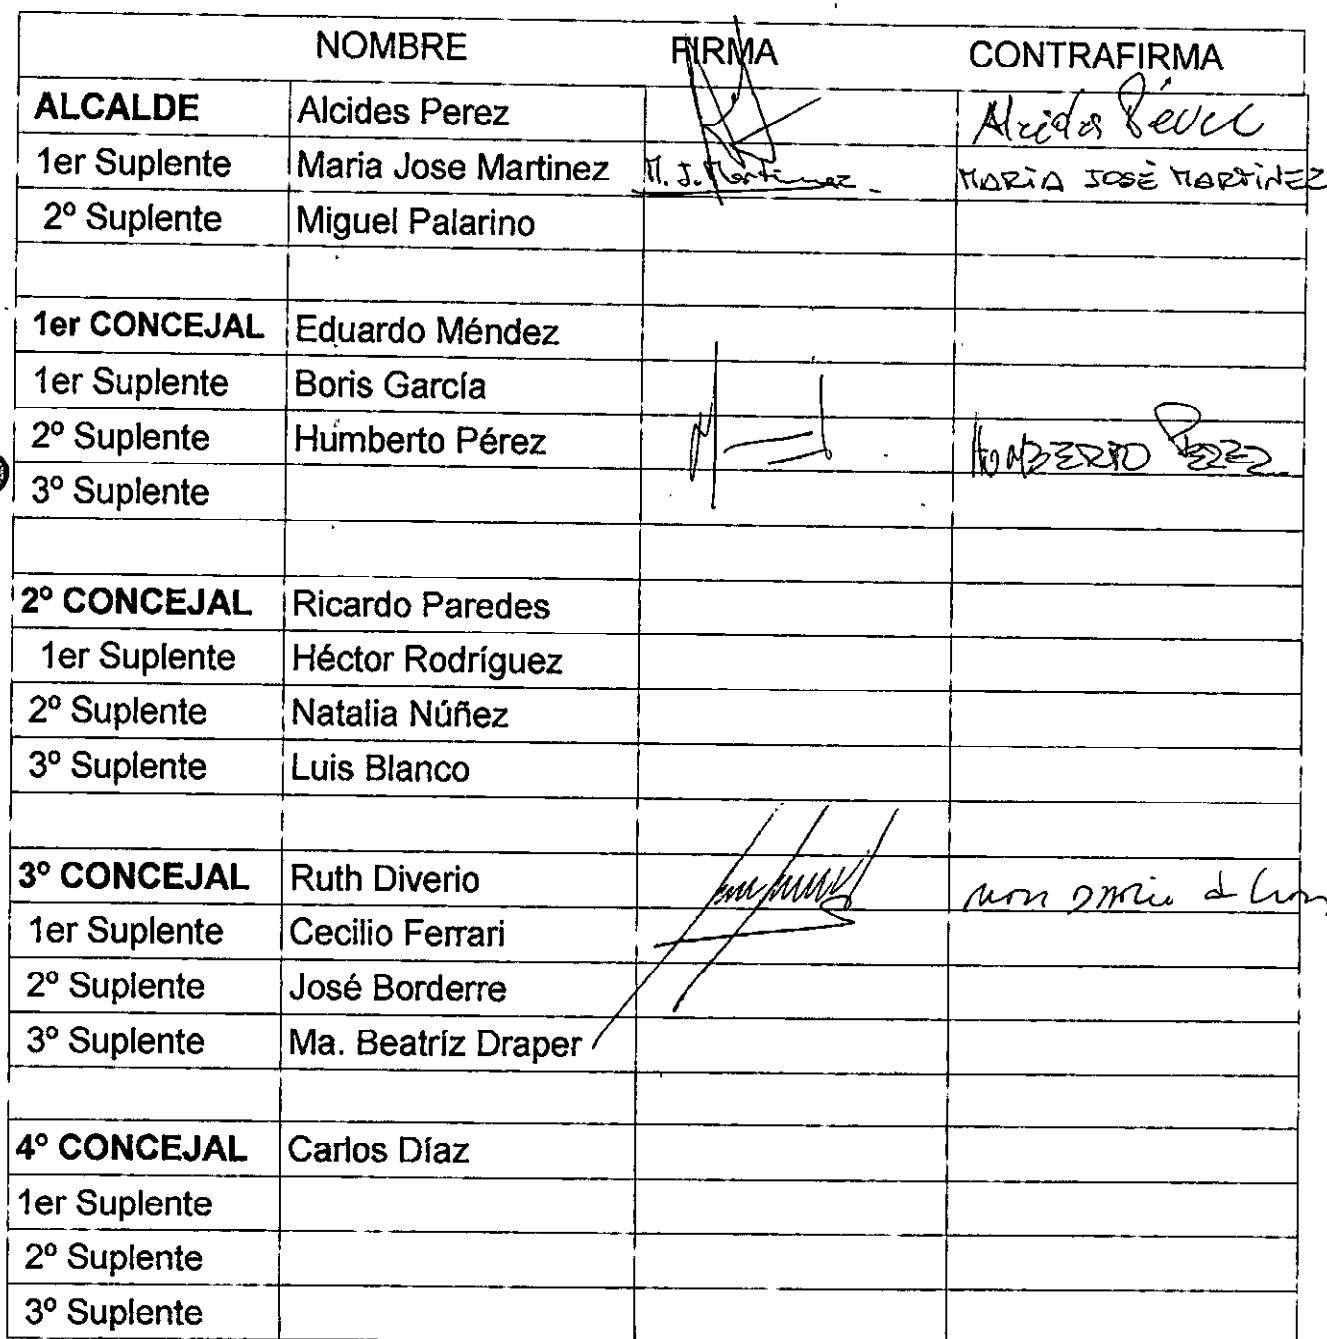 NOMBRE FIRMA CONTRAFIRMA
ALCALDE Alcides Perez Alcides Pérez
1er Suplente Maria Jose Martinez M. J. Martinez MARÍA JOSÉ MARTÍNEZ
2º Suplente Miguel Palarino
1er CONCEJAL Eduardo Méndez
1er Suplente Boris García
2º Suplente Humberto Pérez HUMBERTO PEREZ
3º Suplente
2º CONCEJAL Ricardo Paredes
1er Suplente Héctor Rodríguez
2º Suplente Natalia Núñez
3º Suplente Luis Blanco
3º CONCEJAL Ruth Diverio
1er Suplente Cecilio Ferrari
2º Suplente José Borderre
3º Suplente Ma. Beatríz Draper
4º CONCEJAL Carlos Díaz
1er Suplente
2º Suplente
3º Suplente